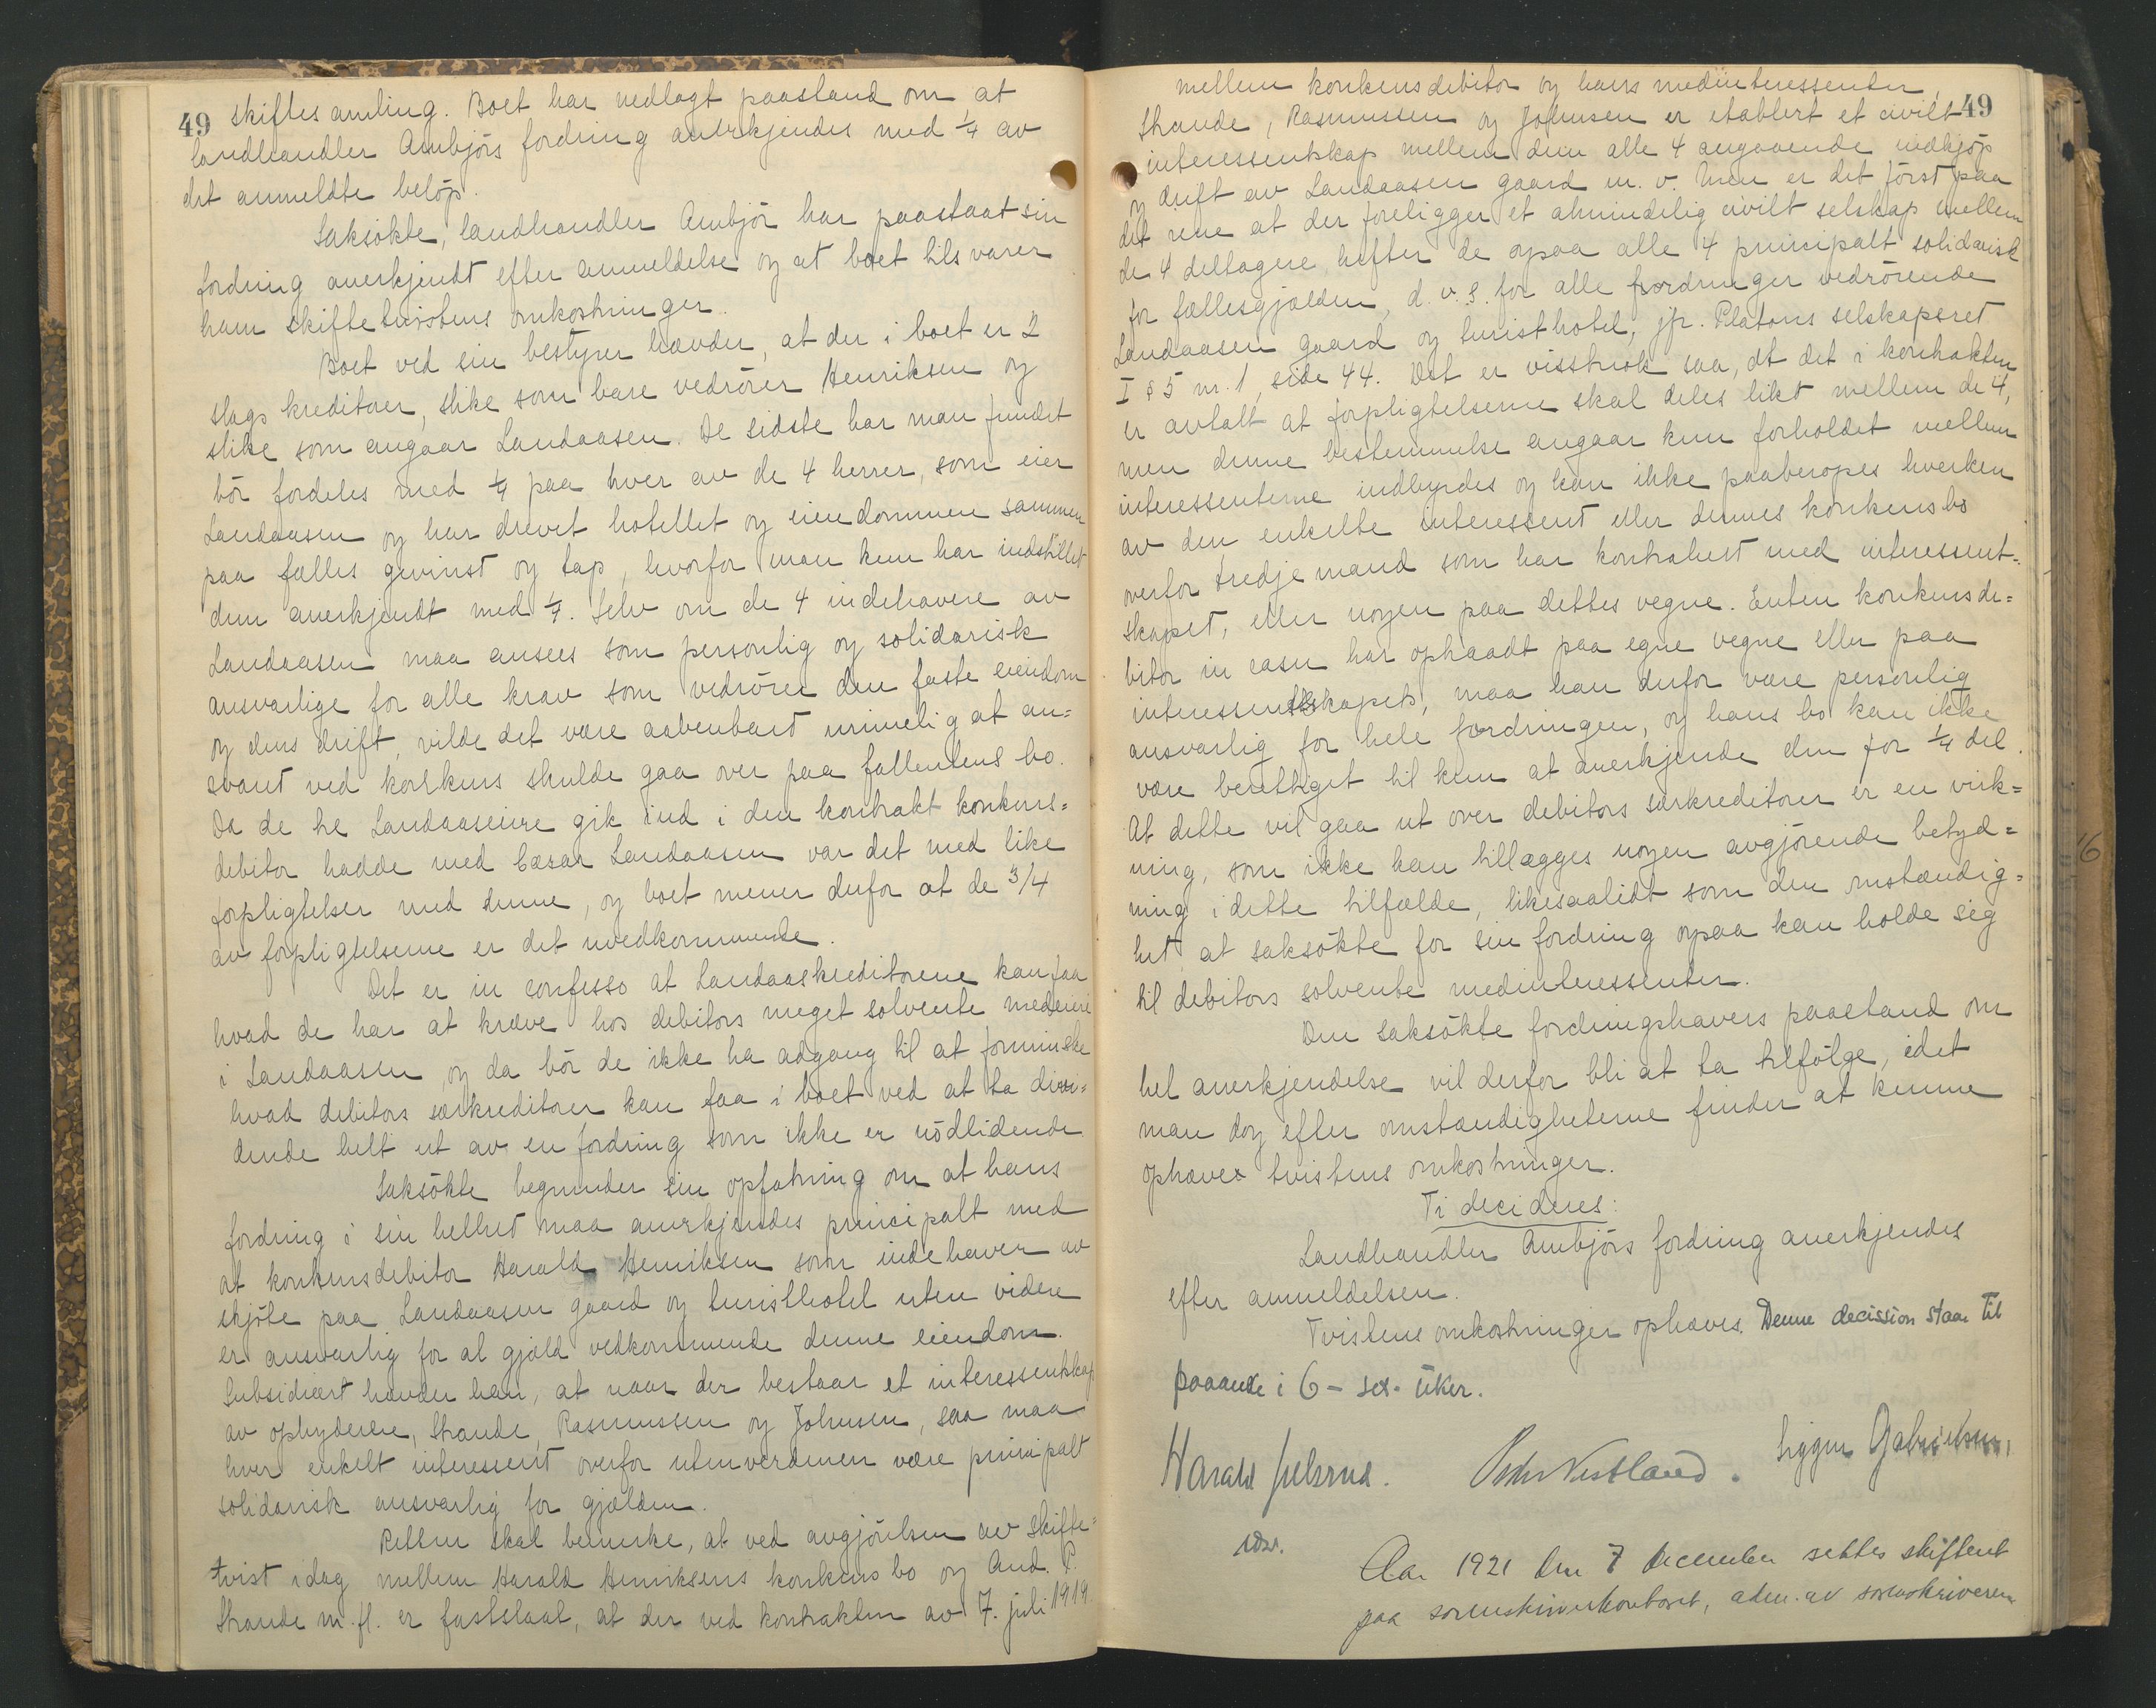 49 skiftesamling. Boet har nedlagt paastand om at
landhandler Ambjørs fordring anerkjendes med ¼ av
det anmeldte beløp.
Saksøkte, landhandler Ambjør har paastaat sin
fordring anerkjendt efter anmeldelse og at boet tilsvarer
ham skiftetvistens omkostninger.
Boet ved sin bestyrer hævder, at der i boet er 2
slags kreditorer, slike som bare vedrører Henriksen og
slike som angaar Landaasen. De sidste har man fundet
bør fordeles med ¼ paa hver av de 4 herrer, som eier
Landaasen og har drevet hotellet og eiendommen sammen
paa fælles gevinst og tap, hvorfor man kun har indstillet
dem anerkjendt med ¼. Selv om de 4 indehavere av
Landaasen maa ansees som personlig og solidarisk
ansvarlige for alle krav som vedrører den faste eiendom
og dens drift, vilde det være aabenbart urimelig at an=
svaret ved konkurs skulde gaa over paa fallentens bo.
Da de tre Landaaseiere gik ind i den kontrakt konkurs=
debitor hadde med Cæsar Landaasen var det med like
forpligtelser med denne, og boet mener derfor at de 3/4
av forpligtelserne er det uvedkommende.
Det er in confesso at Landaaskreditorene kan faa
hvad de har at kræve hos debitors meget solvente medeiere
i Landaasen, og da bør de ikke ha adgang til at forminske
hvad debitors særkreditorer kan faa i boet ved at ta divi=
dende helt ut av en fordring som ikke er nødlidende
Saksøkte begrunder sin opfatning om at hans
fordring i sin helhet maa anerkjendes principalt med
at konkursdebitor Harald Henriksen som indehaver av
skjøte paa Landaasen gaard og turisthotel uten videre
er ansvarlig for al gjæld vedkommende denne eiendom.
Subsidiært hævder han, at naar der bestaar et interessentskap
av ophyderne, Strande, Rasmussen og Johnsen, saa maa
hver enkelt interessent overfor utenverdenen være principalt
solidarisk ansvarlig for gjælden.
Retten skal bemerke, at ved avgjørelsen av skifte=
tvist idag mellem Harald Henriksens konkursbo og And. P.
Strande m. fl. er fastslaat, at der ved kontrakten av 7. juli 1919
mellem konkursdebitor og hans medinteressenter,
Strande, Rasmussen og Johnsen er etablert et civilt 49
interessentskap mellem dem alle 4 angaaende indkjøp
og drift av Landaasen gaard m. v. Men er det først paa
det rene at der foreligger et almindelig civilt selskap mellem
de 4 deltagere hefter de ogsaa alle 4 principalt solidarisk
for fællesgjælden, d. v. s. for alle fordringer vedrørende
Landaasen gaard og turisthotel, jfr. Platous selskapsret
I § 5 nr. 1, side 44. Det er visstnok saa, at det i kontrakten
er avtalt at forpligtelserne skal deles likt mellem de 4,
men denne bestemmelse angaar kun forholdet mellem
interessenterne indbyrdes og kan ikke paaberopes hverken
av den enkelte interessent eller dennes konkursbo
overfor tredjemand som har kontrahert med interessent=
skapet, eller nogen paa dettes vegne. Enten konkursde=
bitor in casu har optraadt paa egne vegne eller paa
interessentskapets, maa han derfor være personlig
ansvarlig for hele fordringen, og hans bo kan ikke
være berettiget til kun at anerkjende den for ¼ del.
At dette vil gaa ut over debitors særkreditorer er en virk=
ning, som ikke kan tillægges nogen avgjørende betyd=
ning i dette tilfælde, likesaalidt som den omstændig=
het at saksøkte for sin fordring ogsaa kan holde sig
til debitors solvente medinteressenter.
Den saksøkte fordringshavers paastand om
hel anerkjendelse vil derfor bli at ta tilfølge, idet
man dog efter omstændigheterne finder at kunne
ophæve tvistens omkostninger.
Ti decideres:
Landhandler Ambjørs fordring anerkjendes
efter anmeldelsen.
Tvistens omkostninger ophæves. Denne decission staar til
paaanke i 6 - sex - uker.
Harald Peder Vestland. Gabrielsen,
Aar 1921 den 7 december settes skifteret
paa sorenskriverkontoret, adm. av sorenskriveren
16